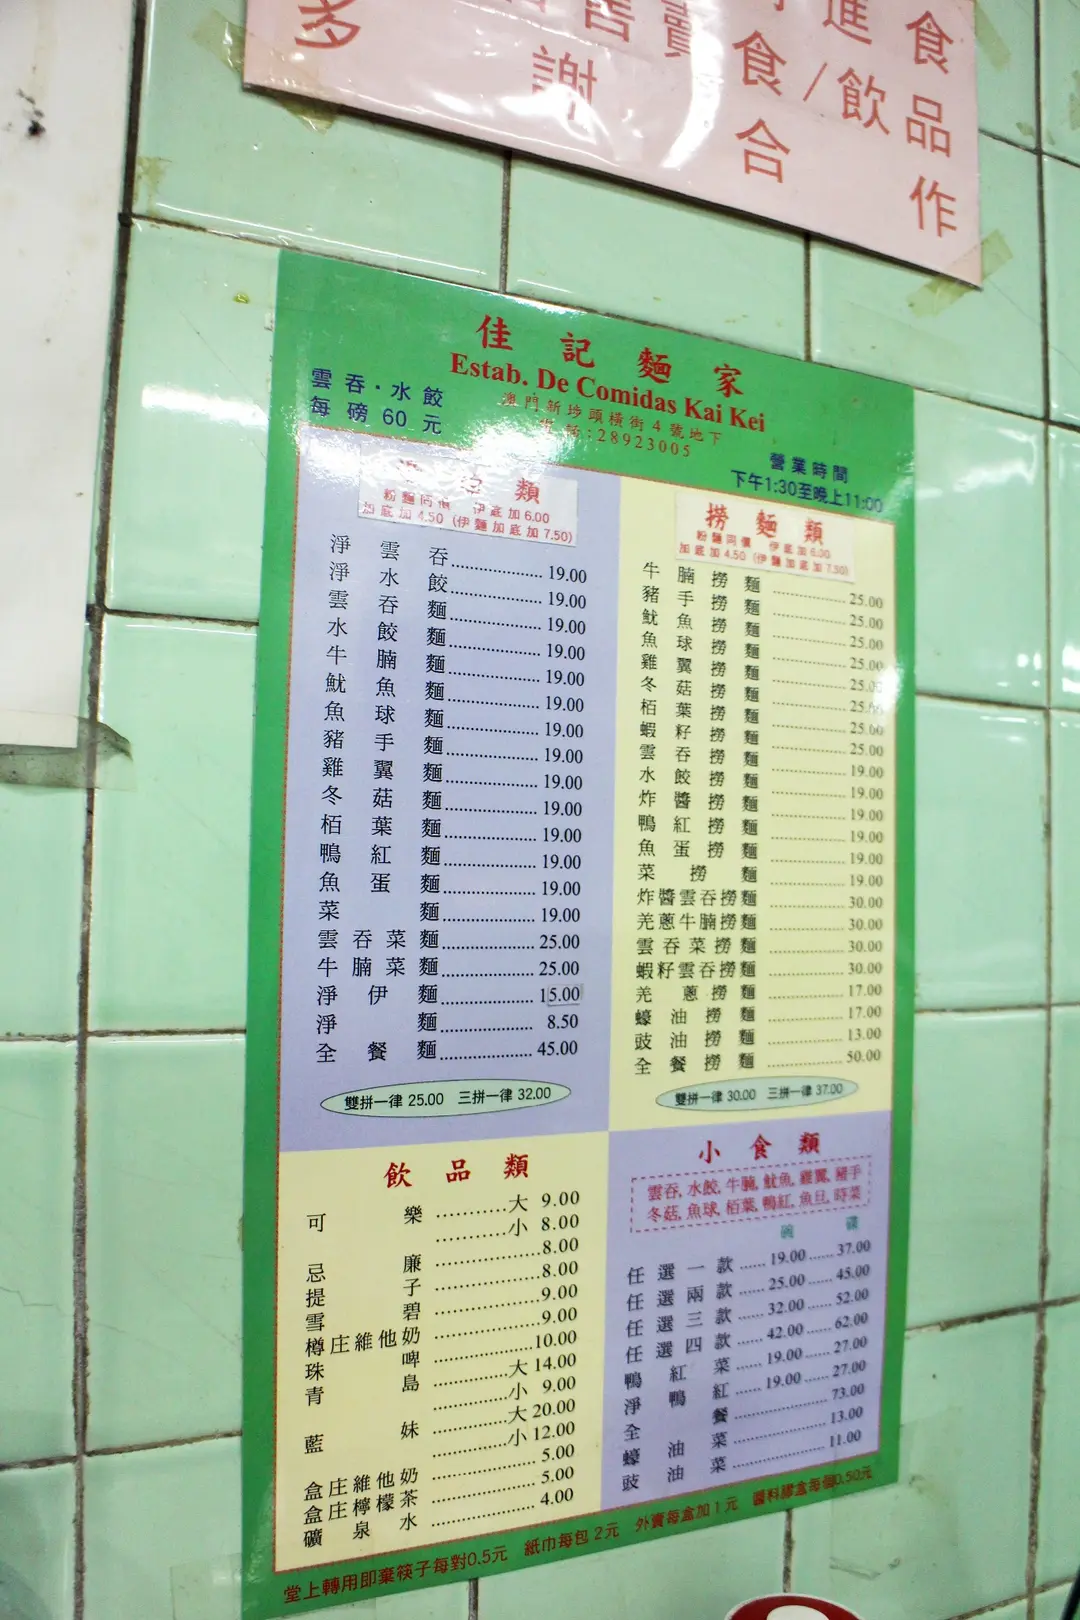 進食
賣食/飲品
多謝合作
佳記麵家
Estab. De Comidas Kai Kei
澳門新埗頭橫街4號地下
電話:28923005
雲吞·水餃
每磅60元
營業時間
下午1:30至晚上11:00
類
粉麵同價 伊底加6.00
加底加4.50 (伊麵加底加7.50)
淨雲吞 19.00
淨水餃 19.00
雲吞麵 19.00
水餃麵 19.00
牛腩麵 19.00
魷魚麵 19.00
魚球麵 19.00
豬手麵 19.00
雞翼麵 19.00
冬菇麵 19.00
栢葉麵 19.00
鴨紅麵 19.00
魚蛋麵 19.00
菜麵 19.00
雲吞菜麵 25.00
牛腩菜麵 25.00
淨伊麵 15.00
淨麵 8.50
全餐麵 45.00
雙拼一律 25.00 三拼一律 32.00
撈麵類
粉麵同價 伊底加6.00
加底加4.50 (伊麵加底加7.50)
牛腩撈麵 25.00
豬手撈麵 25.00
魷魚撈麵 25.00
魚球撈麵 25.00
雞翼撈麵 25.00
冬菇撈麵 25.00
栢葉撈麵 25.00
蝦籽撈麵 25.00
雲吞撈麵 19.00
水餃撈麵 19.00
炸醬撈麵 19.00
鴨紅撈麵 19.00
魚蛋撈麵 19.00
菜撈麵 19.00
炸醬雲吞撈麵 30.00
羌蔥牛腩撈麵 30.00
雲吞菜撈麵 30.00
蝦籽雲吞撈麵 30.00
羌蔥撈麵 17.00
蠔油撈麵 17.00
豉油撈麵 13.00
全餐撈麵 50.00
雙拼一律 30.00 三拼一律 37.00
飲品類
可樂 大 9.00
小 8.00
忌廉 8.00
提子 8.00
雪碧 9.00
樽庄維他奶 9.00
珠啤 10.00
青島 大 14.00
小 9.00
藍妹 大 20.00
小 12.00
盒庄維他奶 5.00
盒庄檸檬茶 5.00
礦泉水 4.00
小食類
雲吞, 水餃, 牛腩, 魷魚, 雞翼, 豬手
冬菇, 魚球, 栢葉, 鴨紅, 魚旦, 時菜
碗 碟
任選一款 19.00 37.00
任選兩款 25.00 45.00
任選三款 32.00 52.00
任選四款 42.00 62.00
鴨紅菜 19.00 27.00
淨鴨紅 19.00 27.00
全餐 73.00
蠔油菜 13.00
豉油菜 11.00
堂上轉用即棄筷子每對0.5元 紙巾每包2元 外賣每盒加1元 醬料膠盒每個0.50元